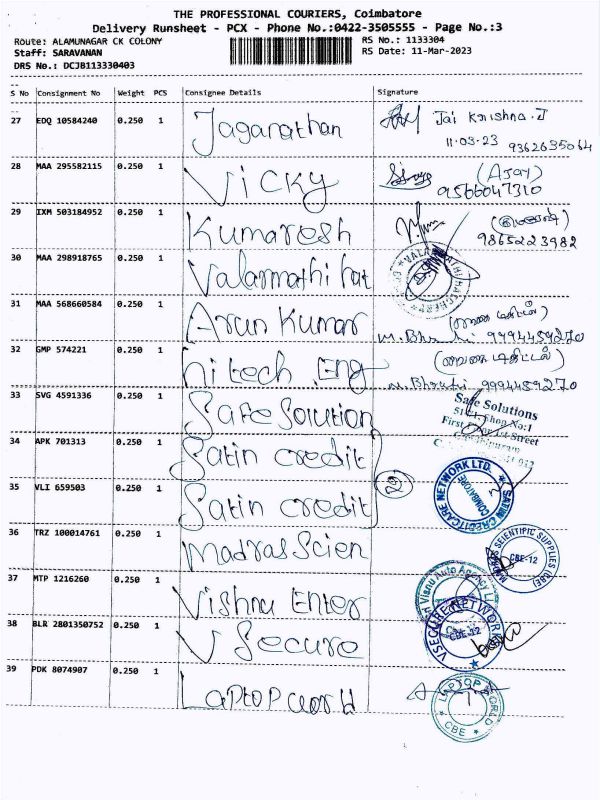 THE PROFESSIONAL COURIERS, Coimbatore
Delivery Runsheet - PCX - Phone No.:0422-3505555 - Page No.:3
Route: ALAMUNAGAR CK COLONY
RS No.: 1133304
Staff: SARAVANAN
RS Date: 11-Mar-2023
DRS No.: DCJB113330403
S No Consignment No Weight PCS Consignee Details Signature
27 EDQ 10584240 0.250 1 Jaganathan Jai Krishna.J
11-03-23 9362635064
28 MAA 295582115 0.250 1 Vicky (Ajay)
9566047310
29 IXM 503184952 0.250 1 Kumaresh
9865223982
30 MAA 298918765 0.250 1 Valarmathi hat
31 MAA 568660584 0.250 1 Arun Kumar
M. Bharathi 9994459270
32 GMP 574221 0.250 1 hitech Eng
M. Bharathi 9994459270
33 SVG 4591336 0.250 1 Safe Solution
Safe Solutions
Shop No:1
34 APK 701313 0.250 1 Satin credit
35 VLI 659503 0.250 1 Satin credit
SATIN CREDITCARE NETWORK LTD.
COIMBATORE
36 TRZ 100014761 0.250 1 Madras Scien
MADRAS SCIENTIFIC SUPPLIES (CBE)
CBE-12
37 MTP 1216260 0.250 1 Vishnu Enter
38 BLR 2801350752 0.250 1 V Secure
VSECURE NETWORK
CBE-12
39 PDK 8074907 0.250 1 Laptop world
CBE